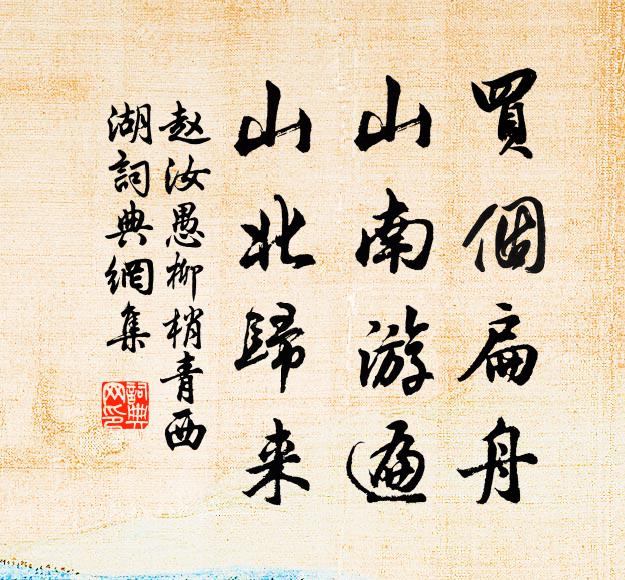 買個扁舟
山南游遍
山北歸来
赵汝愚柳梢青西
湖詞典網集
詞典網印